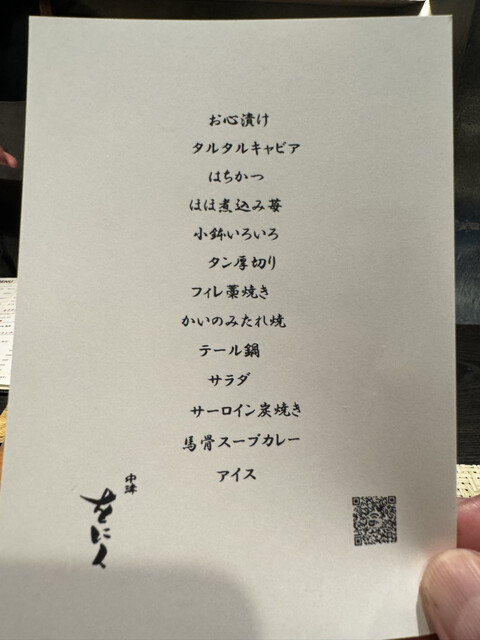 お心漬け
タルタルキャビア
はちかつ
ほほ煮込み苺
小鉢いろいろ
タン厚切り
フィレ藁焼き
かいのみたれ焼
テール鍋
サラダ
サーロイン炭焼き
馬骨スープカレー
アイス
中津
をにく